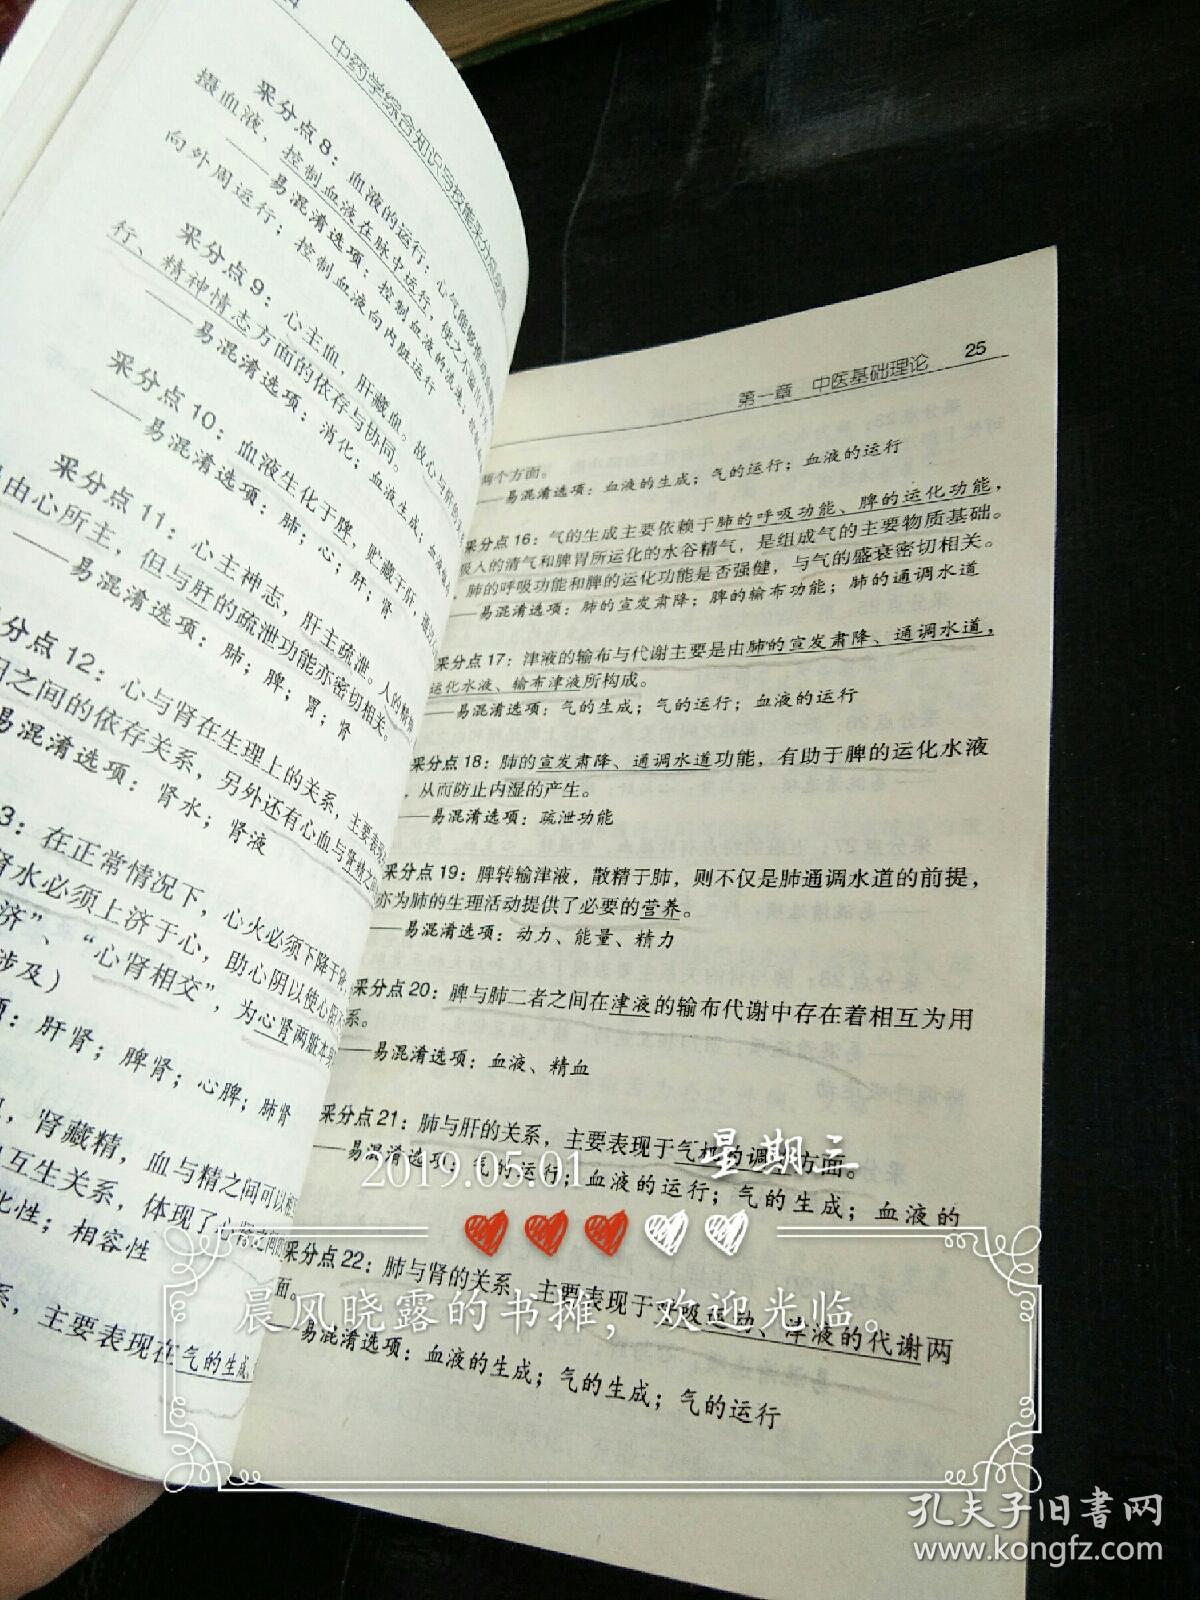 中药学综合知识与技能采分点必背
采分点8：血液的运行：心气能够推动
摄血液，控制血液在脉中运行，使之不溢
——易混淆选项：控制血液的流速；控
向外周运行；控制血液向内脏运行
采分点9：心主血，肝藏血。故心与肝的
行、精神情志方面的依存与协同。
——易混淆选项：消化；血液生成；血
采分点10：血液生化于脾，贮藏于肝，通
——易混淆选项：肺；心；肝；肾
采分点11：心主神志，肝主疏泄。人的精神
由心所主，但与肝的疏泄功能亦密切相关。
——易混淆选项：肺；脾；胃；肾
分点12：心与肾在生理上的关系，主要表现
之间的依存关系，另外还有心血与肾精之间
易混淆选项：肾水；肾液
3：在正常情况下，心火必须下降于
肾水必须上济于心，助心阴以使心阳
济”、“心肾相交”，为心肾两脏本
涉及）
：肝肾；脾肾；心脾；肺肾
，肾藏精，血与精之间可以相
互生关系，体现了心肾之间
化性；相容性
系，主要表现在气的生成
第一章 中医基础理论 25
两个方面。
——易混淆选项：血液的生成；气的运行；血液的运行
采分点16：气的生成主要依赖于肺的呼吸功能、脾的运化功能，
吸入的清气和脾胃所运化的水谷精气，是组成气的主要物质基础。
，肺的呼吸功能和脾的运化功能是否强健，与气的盛衰密切相关。
——易混淆选项：肺的宣发肃降；脾的输布功能；肺的通调水道
采分点17：津液的输布与代谢主要是由肺的宣发肃降、通调水道，
运化水液、输布津液所构成。
——易混淆选项：气的生成；气的运行；血液的运行
采分点18：肺的宣发肃降、通调水道功能，有助于脾的运化水液
，从而防止内湿的产生。
——易混淆选项：疏泄功能
采分点19：脾转输津液，散精于肺，则不仅是肺通调水道的前提，
亦为肺的生理活动提供了必要的营养。
——易混淆选项：动力、能量、精力
采分点20：脾与肺二者之间在津液的输布代谢中存在着相互为用
系。
——易混淆选项：血液、精血
采分点21：肺与肝的关系，主要表现于气机的调节方面。
——易混淆选项：气的运行；血液的运行；气的生成；血液的
2019.05.01 星期三
采分点22：肺与肾的关系，主要表现于呼吸运动、津液的代谢两
面。
晨风晓露的书摊，欢迎光临。
——易混淆选项：血液的生成；气的生成；气的运行
孔夫子旧书网
www.kongfz.com